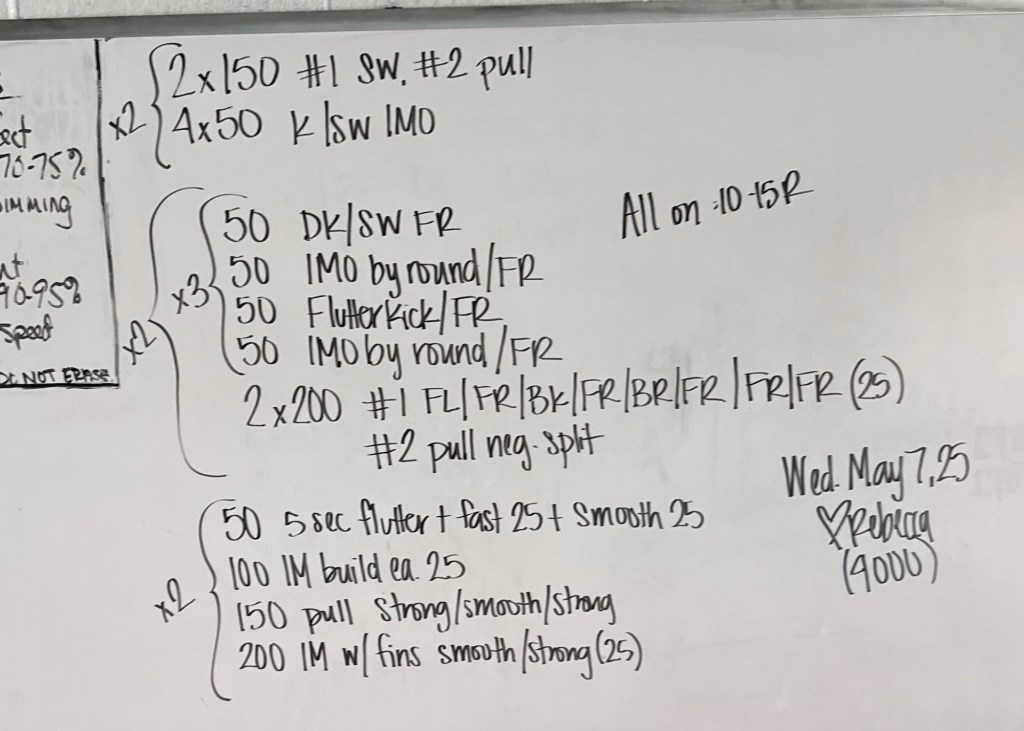 70-75%
90-95%
Speed
DO NOT ERASE
x2
2x150 #1 SW, #2 pull
4x50 K/SW IMO
All on :10-15R
x2
x3
50 DK/SW FR
50 IMO by round/FR
50 Flutter Kick/FR
50 IMO by round/FR
2x200 #1 FL/FR/BK/FR/BR/FR/FR/FR (25)
#2 pull neg. split
Wed. May 7, 25
♡Rebecca
(4000)
x2
50 5 sec flutter + fast 25 + smooth 25
100 IM build ea. 25
150 pull strong/smooth/strong
200 IM w/ fins smooth/strong (25)